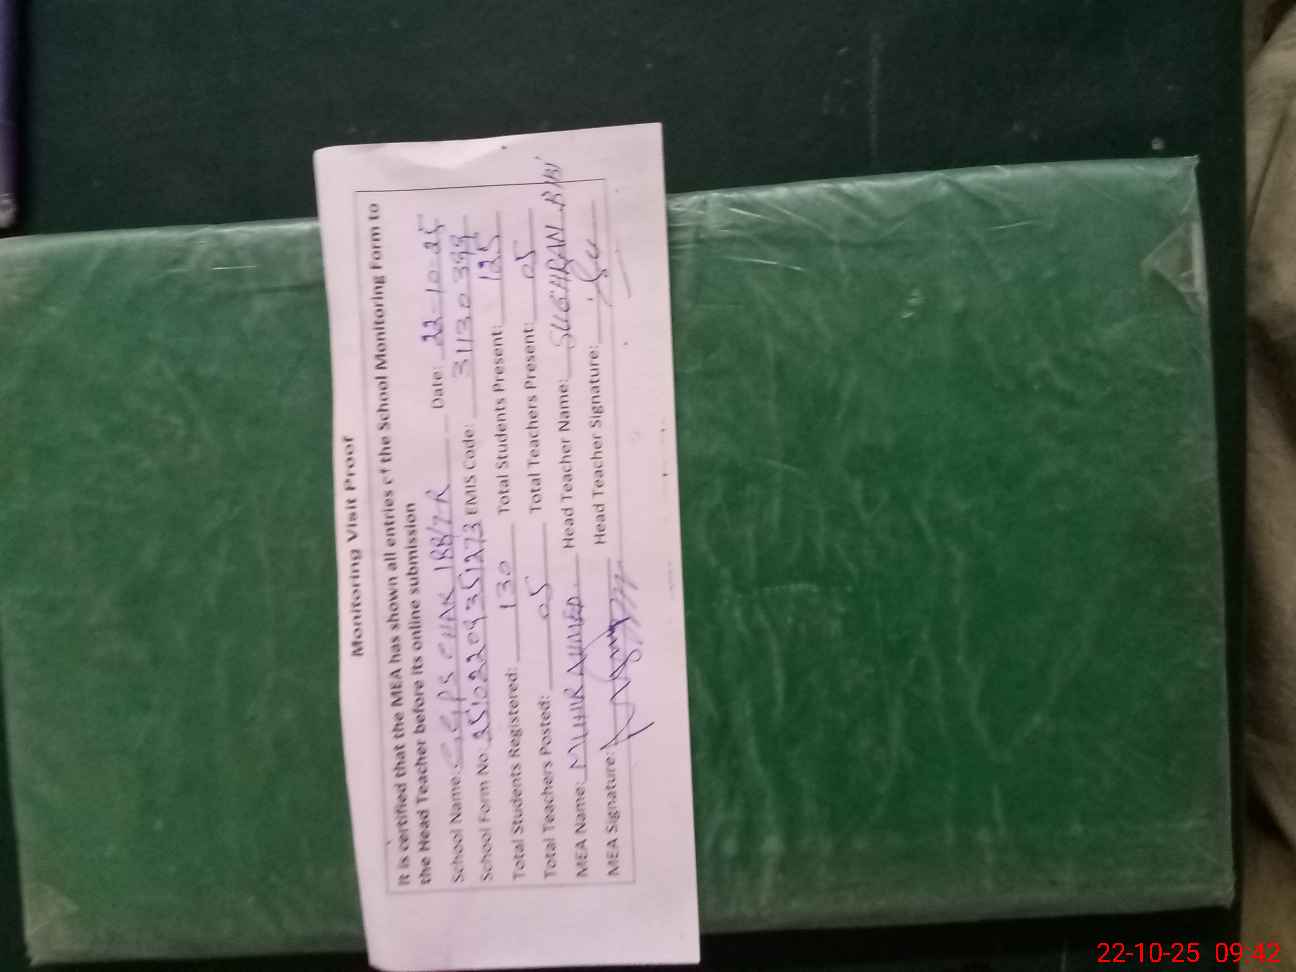 Monitoring Visit Proof
It is certified that the MEA has shown all entries of the School Monitoring Form to
the Head Teacher before its online submission
School Name: GGPS CHAK 188/7R Date: 22-10-25
School Form No 25102209351273 EMIS Code: 31130399
Total Students Registered: 130 Total Students Present: 125
Total Teachers Posted: 05 Total Teachers Present: 05
MEA Name: AHMED Head Teacher Name: SUGHRAN BIBI
MEA Signature: Head Teacher Signature:
22-10-25 09:42